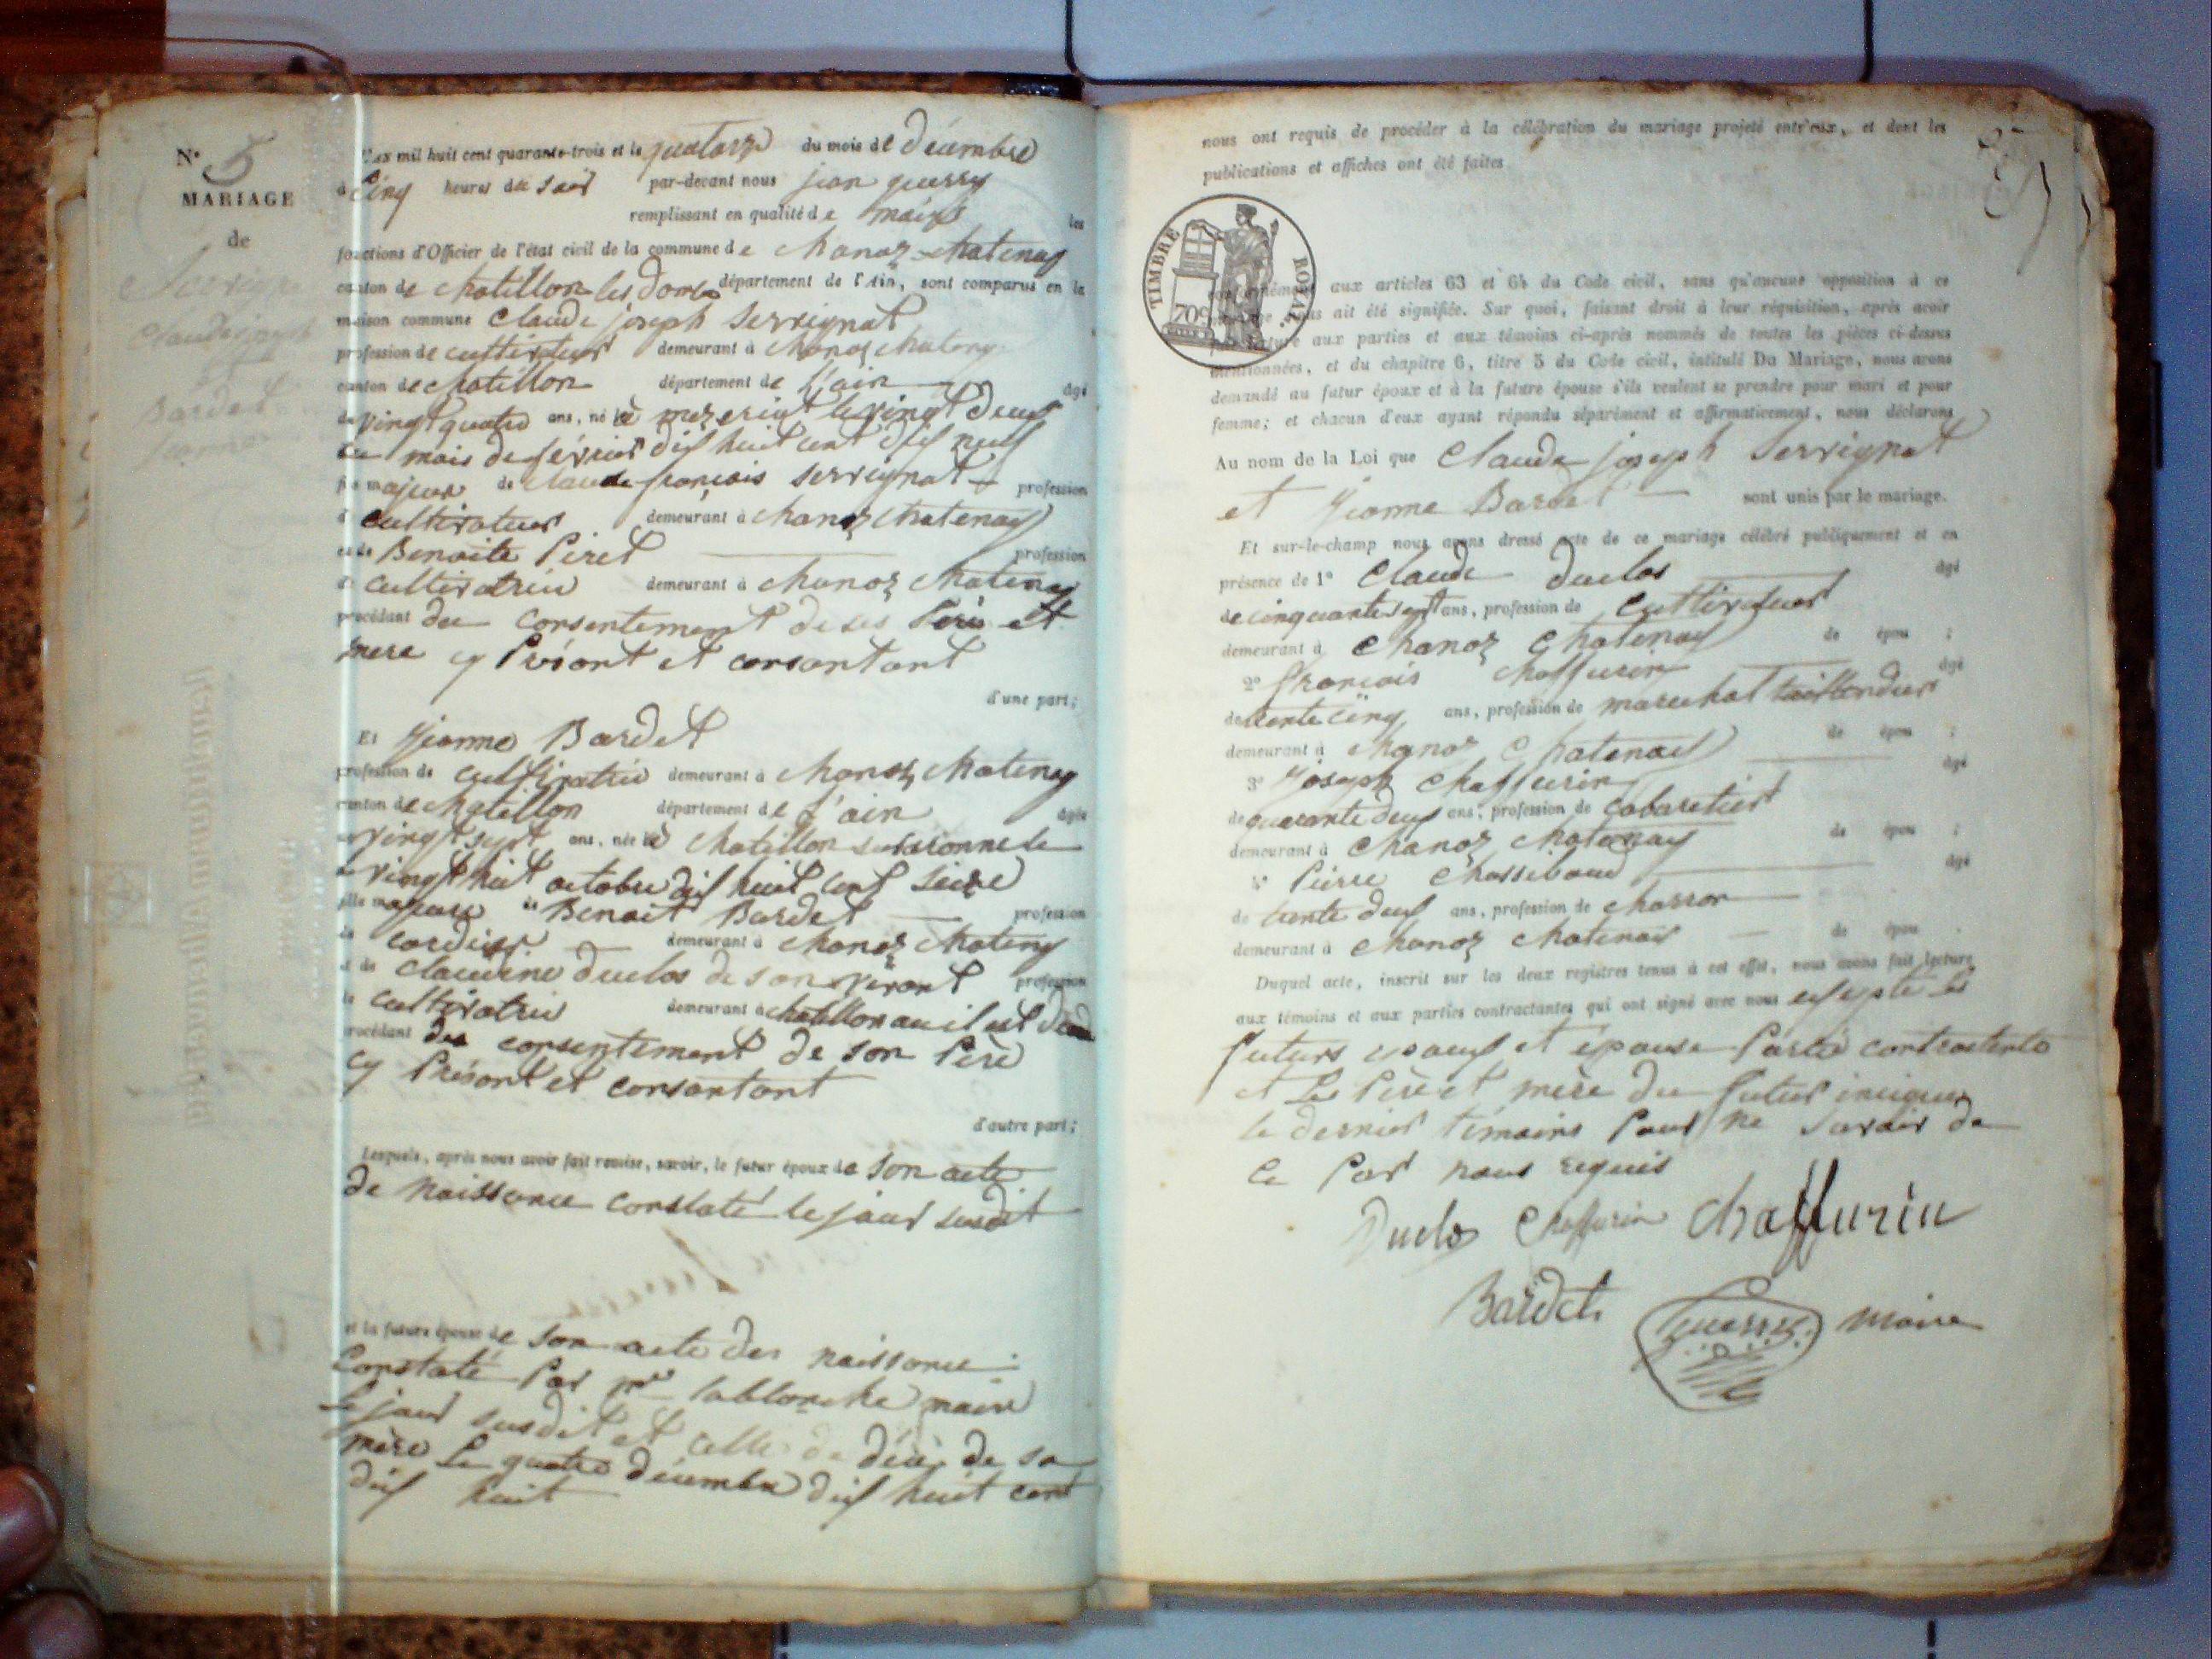 N° 5
MARIAGE
de
Serrignat
Claude joseph
et
Bardet
jeanne
L'an mil huit cent quarante-trois et le quatorze du mois de décembre
à cinq heures du soir par-devant nous jean guerry
remplissant en qualité de maire les
fonctions d'Officier de l'état civil de la commune de chanoz chatenay
canton de chatillon les dombes département de l'Ain, sont comparus en la
maison commune Claude joseph Serrignat
profession de cultivateur demeurant à chanoz chatenay
canton de chatillon département de l'ain âgé
de vingt quatre ans, né à mezeriat le vingt deux
du mois de février dix huit cent dix neuf
fils majeur de Claude françois serrignat profession
de cultivateur demeurant à chanoz chatenay
et de Benoite Piret profession
de cultivatrice demeurant à chanoz chatenay
procédant du consentement de ses Père et
mere cy Présent et consantant
d'une part;
Et Jeanne Bardet
profession de cultivatrice demeurant à chanoz chatenay
canton de chatillon département de l'ain âgée
de vingt sept ans, née à chatillon
le vingt huit octobre dix huit cent seize
fille majeure de Benoit Bardet profession
de cordier demeurant à chanoz chatenay
et de claudine duclos de son vivant profession
de cultivatrice demeurant à chatillon
procédant du consentement de son Père
cy Présent et consantant
d'autre part;
Lesquels, après nous avoir fait remise, savoir, le futur époux de son acte
de naissance constaté le jour susdit
et la future épouse de son acte des naissance
Constaté Par mr lablanche maire
le jour susdit et celle de décè de sa
mère le quatre décembre dix huit cent
dix huit
nous ont requis de procéder à la célébration du mariage projeté entr'eux, et dont les
publications et affiches ont été faites
TIMBRE ROYAL
70c
conformément aux articles 63 et 64 du Code civil, sans qu'aucune opposition à ce
mariage nous ait été signifiée. Sur quoi, faisant droit à leur réquisition, après avoir
fait lecture aux parties et aux témoins ci-après nommés de toutes les pièces ci-dessus
mentionnées, et du chapitre 6, titre 5 du Code civil, intitulé Du Mariage, nous avons
demandé au futur époux et à la future épouse s'ils veulent se prendre pour mari et pour
femme; et chacun d'eux ayant répondu séparément et affirmativement, nous déclarons
Au nom de la Loi que Claude joseph Serrignat
et Jeanne Bardet sont unis par le mariage.
Et sur-le-champ nous avons dressé acte de ce mariage célébré publiquement et en
présence de 1° Claude duclos âgé
de cinquante sept ans, profession de cultivateur
demeurant à Chanoz Chatenay de épou ;
2° françois chaffurin âgé
de trente cinq ans, profession de marechal taillandier
demeurant à chanoz Chatenay de épou ;
3° Joseph Chaffurin âgé
de quarante deux ans, profession de cabaretier
demeurant à Chanoz chatenay de épou ;
4° Pierre Chassibaud âgé
de trente deux ans, profession de charron
demeurant à chanoz chatenay de épou .
Duquel acte, inscrit sur les deux registres tenus à cet effet, nous avons fait lecture
aux témoins et aux parties contractantes qui ont signé avec nous exepté les
futurs epoux et épouse Partie contractente
et Le Père et mère du futur
le dernier témoins Pour ne savoir de
ce Par nous requis
Duclos Chaffurin Chaffurin
Bardet Guerry maire